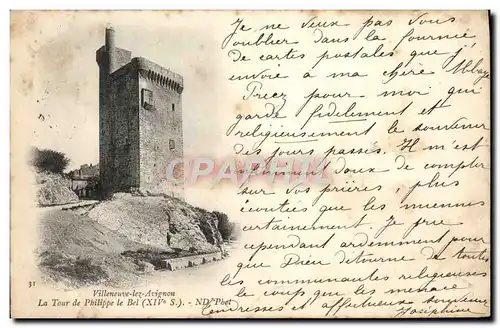 Je ne veux pas vous
oublier dans la fournée
de cartes postales que j'
envoie à ma chère Abbaye
Priez pour moi qui
garde fidèlement et
religieusement le souvenir
des jours passés. Il m'est
infiniment doux de compter
sur vos prières, plus
écoutées que les miennes
certainement. Je prie
cependant ardemment pour
que Dieu détourne de toutes
les communautés religieuses
le coup que les menace
Tendresses et affectueux souvenir
Joséphine
CPARAMA
31
Villeneuve-lez-Avignon
La Tour de Philippe le Bel (XIVe S.). - ND Phot